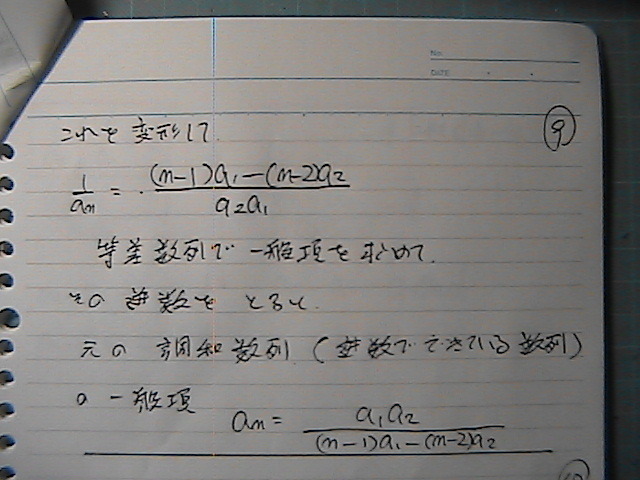 No.
DATE
9
これを変形して
1/an = (n-1)a1-(n-2)a2 / a2a1
等差数列で一般項を求めて.
その逆数をとると.
元の調和数列(逆数でできている数列)
の一般項 an = a1a2 / (n-1)a1-(n-2)a2